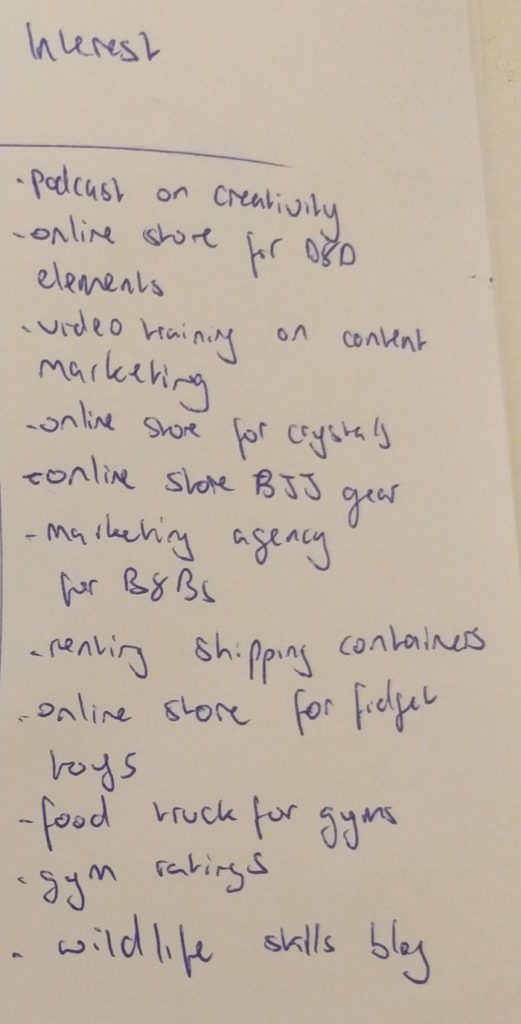 Interest
- podcast on creativity
- online store for D&D
elements
- video training on content
marketing
- online store for crystals
- online store BJJ gear
- marketing agency
for B&Bs
- renting shipping containers
- online store for fidget
toys
- food truck for gyms
- gym ratings
- wildlife skills blog